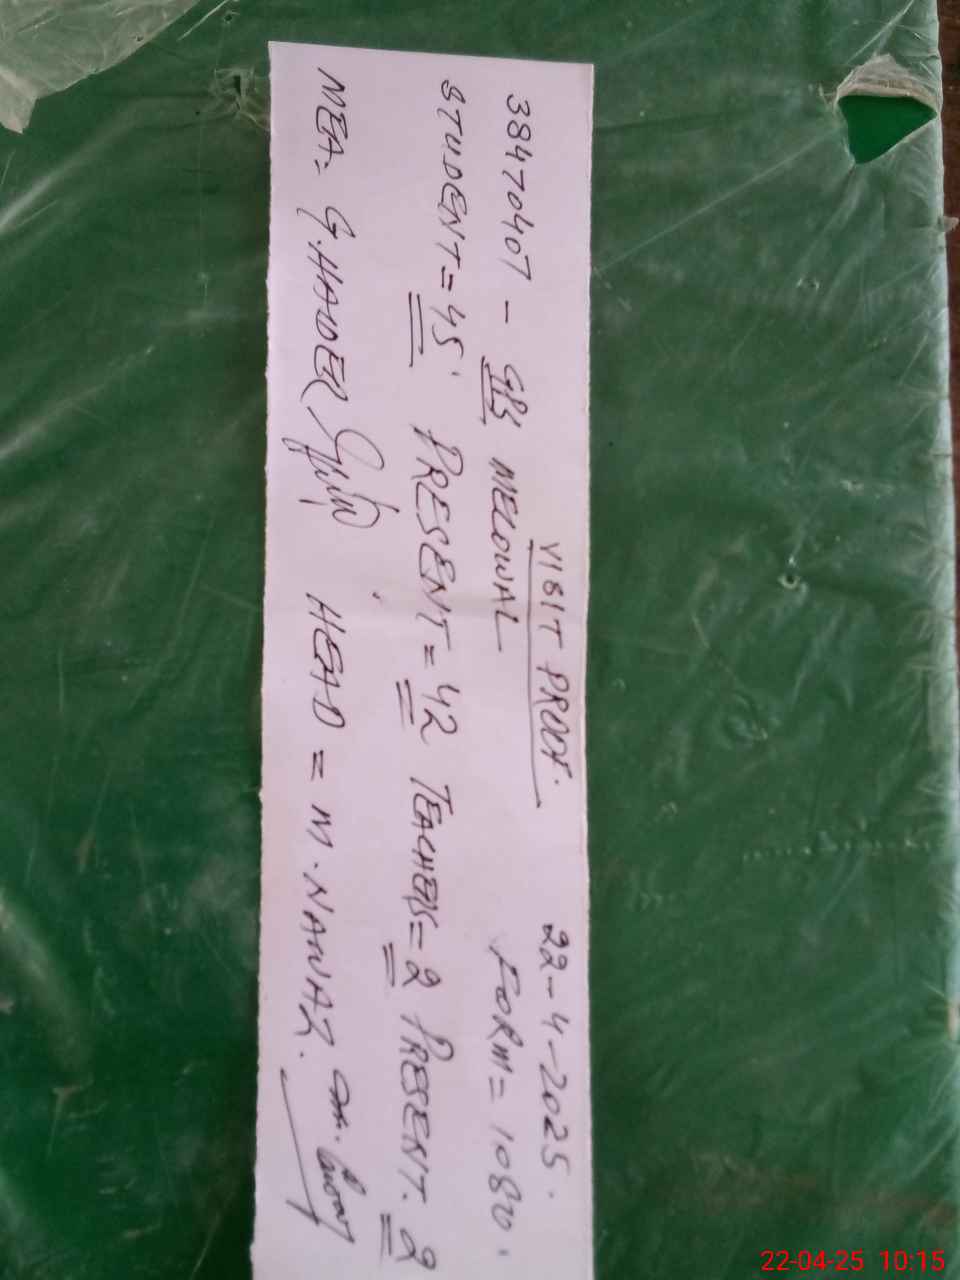 VISIT PROOF. 22-4-2025.
38470407 - GPS MELOWAL FORM = 1080.
STUDENT = 45 PRESENT = 42 TEACHERS = 2 PRESENT. 2
MEA = G. HADER HEAD = M. NAWAZ.
22-04-25 10:15